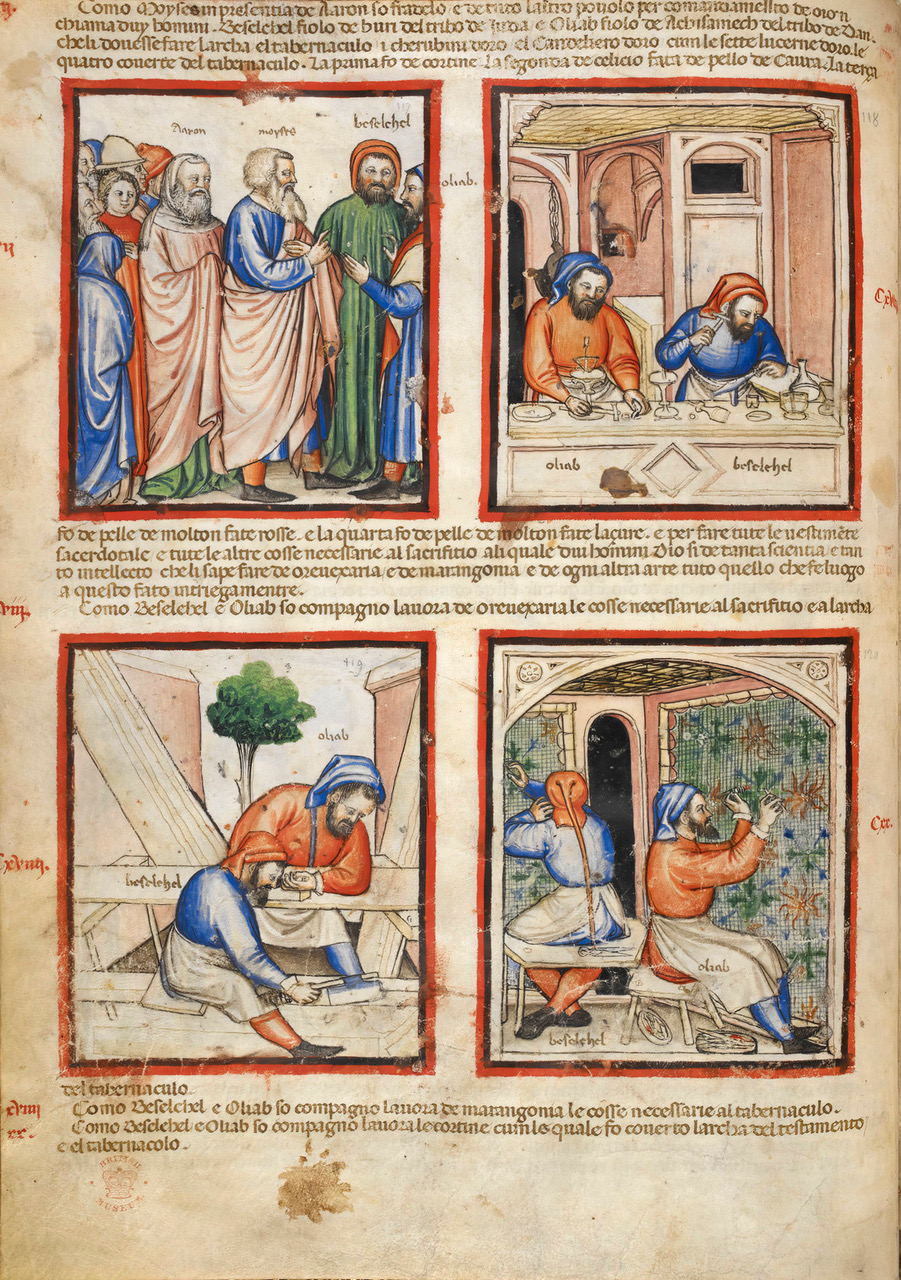 Como Moyses in presentia de Aaron so fradelo e de tuto laltro pouolo per comandamento de dio
chiama duy homini. Beselehel fiolo de huri del tribo de Juda e Oliab fiolo de Achisamech del tribo de Dan.
che li douesse fare larcha el tabernaculo i cherubini doro. el Candeliero doro cum le sette lucerne doro. le
quatro couerte del tabernaculo. La prima fo de cortine La segonda de celicio fata de pello de Caura. La terça
Aaron
moyses
beselehel
oliab.
118
oliab
beselehel
fo de pelle de molton fate rosse. e la quarta fo de pelle de molton fate laçure. e per fare tute le uestimēte
sacerdotale e tute le altre cosse necessarie al sacrifitio ali quale dui homini Dio si de tanta scientia e tan
to intellecto che li sape fare de oreuexaria e de marangonia e de ogni altra arte tuto quello che fe luogo
a questo fato intriegamentre.
Como Beselehel e Oliab so compagno lauora de oreuexaria le cosse necessarie al sacrifitio e a larcha
119
oliab
beselehel
Cxviiij.
120
Cxx.
oliab
beselehel
del tabernaculo.
xviiij Como Beselehel e Oliab so compagno lauora de marangonia le cosse necessarie al tabernaculo.
xx. Como Beselehel e Oliab so compagno laura le cortine cum le quale fo couerto larcha del testamento
e el tabernacolo.
BRITISH
MUSEUM